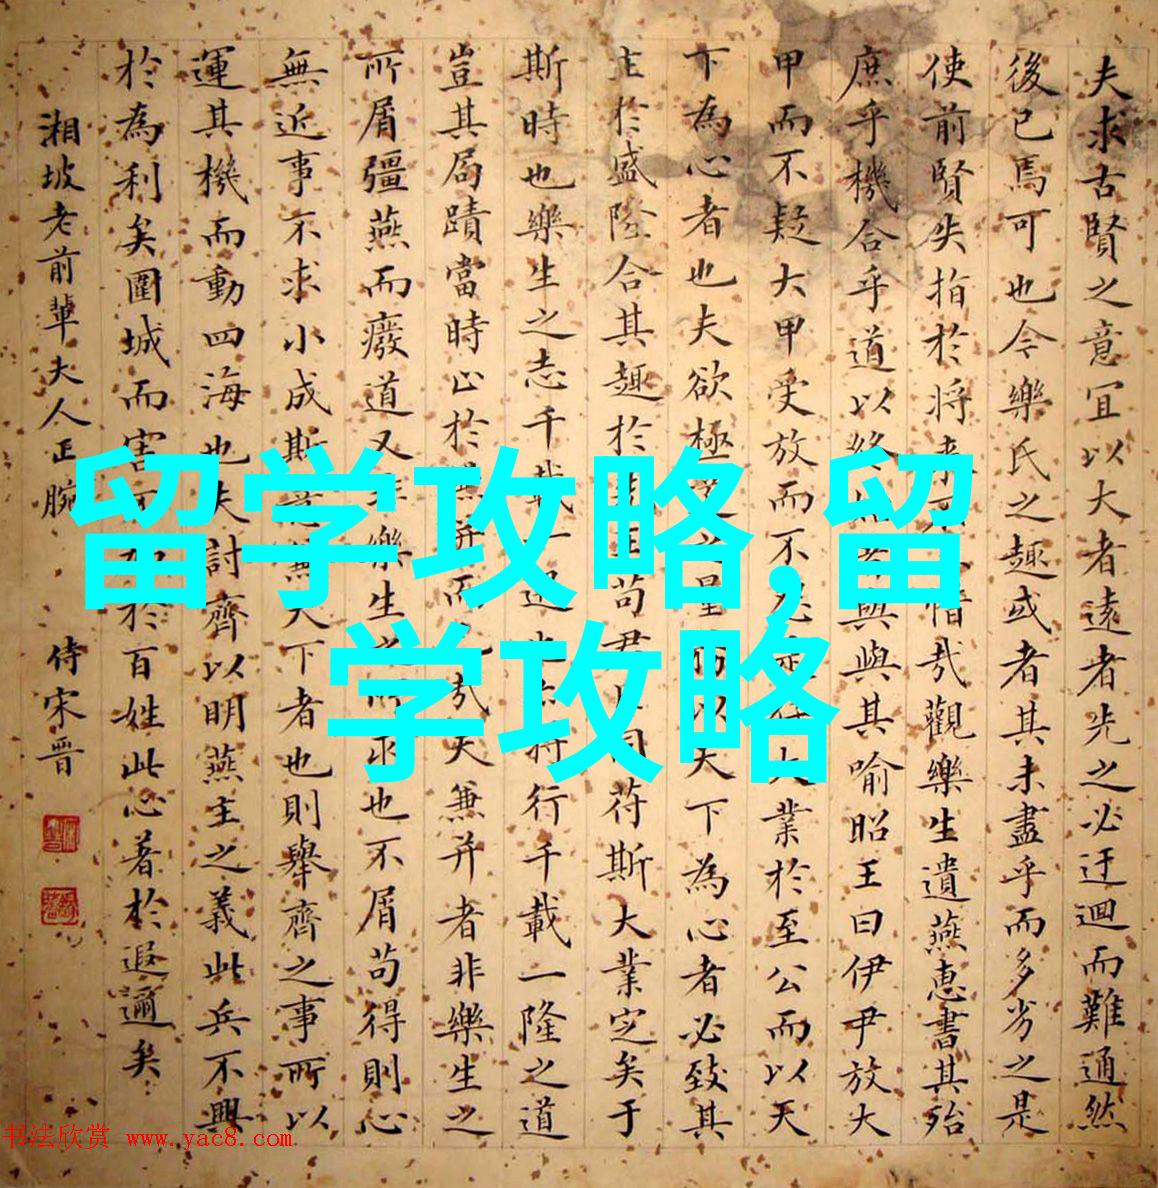 夫求古賢之意宜以大者遠者先之必迂迴而難通然
後已焉可也今樂氏之趣或者其未盡乎而多劣之是
使前賢失指於將惜哉觀樂生遺燕惠書其殆
庶乎機合乎道以終與與其喻昭王曰伊尹放大
甲而不疑大甲受放而不大業於至公而以天
下為心者也夫欲極之量以天下為心者必致其
主於盛隆合其趣於王苟同苻斯大業定矣于
斯時也樂生之志千載一將行千載一隆之道
豈其局蹟當時止於并而哉夫兼并者非樂生之
所屑彊燕而廢道又非樂生之所求也不屑苟得則心
無近事不求小成斯天下者也則舉齊之事所以
運其機而動四海也夫討齊以明燕主之義此兵不興
於為利矣圍城而害於百姓此心著於遐邇矣
湘坡老前輩夫人正腕 侍宋晋
留学攻略,留
学攻略
书法欣赏 www.yac8.com